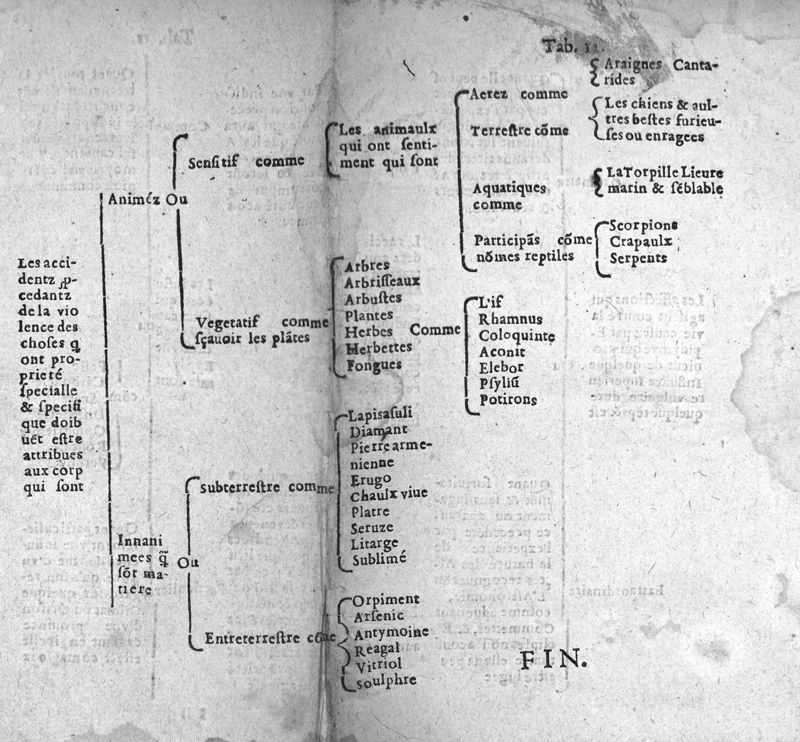 Tab. 11.
Les acci-
dentz ꝓ-
cedantz
de la vio
lence des
choses q̃
ont pro-
prieté
specialle
& specifi
que doib
uẽt estre
attribues
aux corp
qui sont
Animéz Ou
Sensitif comme
Les animaulx
qui ont senti-
ment qui sont
Aerez comme
Araignes Canta-
rides
Terrestre cõme
Les chiens & aul-
tres bestes furieu-
ses ou enragees
Aquatiques
comme
La Torpille Lieure
marin & sẽblable
Participãs cõme
nõmes reptiles
Scorpions
Crapaulx
Serpents
Vegetatif comme
sçauoir les plãtes
Arbres
Arbrisseaux
Arbustes
Plantes
Herbes Comme
Herbettes
Fongues
L'if
Rhamnus
Coloquinte
Aconit
Elebor
Psyliũ
Potirons
Innani
mees q̃
sõt ma-
tiere
Ou
Subterrestre comme
Lapisasuli
Diamant
Pierre arme-
nienne
Erugo
Chaulx viue
Platre
Seruze
Litarge
Sublimé
Entreterrestre cõme
Orpiment
Arsenic
Antymoine
Reagal
Vitriol
soulphre
FIN.